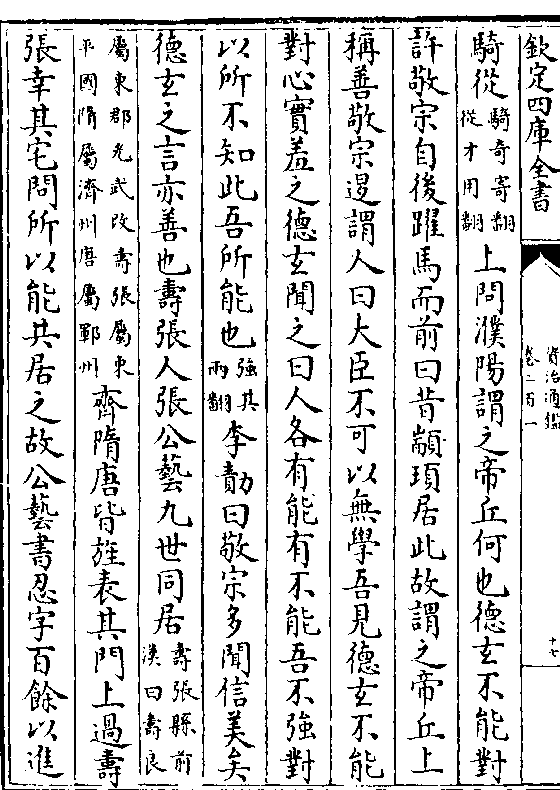 欽定四庫全書
資治通鑑
卷二百一
十七
騎從騎奇寄翻從才用翻上問濮陽謂之帝丘何也德玄不能對
許敬宗自後躍馬而前曰昔顓頊居此故謂之帝丘上
稱善敬宗退謂人曰大臣不可以無學吾見德玄不能
對心實羞之德玄聞之曰人各有能有不能吾不強對
以所不知此吾所能也強其兩翻李勣曰敬宗多聞信美矣
德玄之言亦善也壽張人張公藝九世同居壽張縣前漢曰壽良
屬東郡光武改壽張屬東平國隋屬濟州唐屬鄆州齊隋唐皆旌表其門上過壽
張幸其宅問所以能共居之故公藝書忍字百餘以進